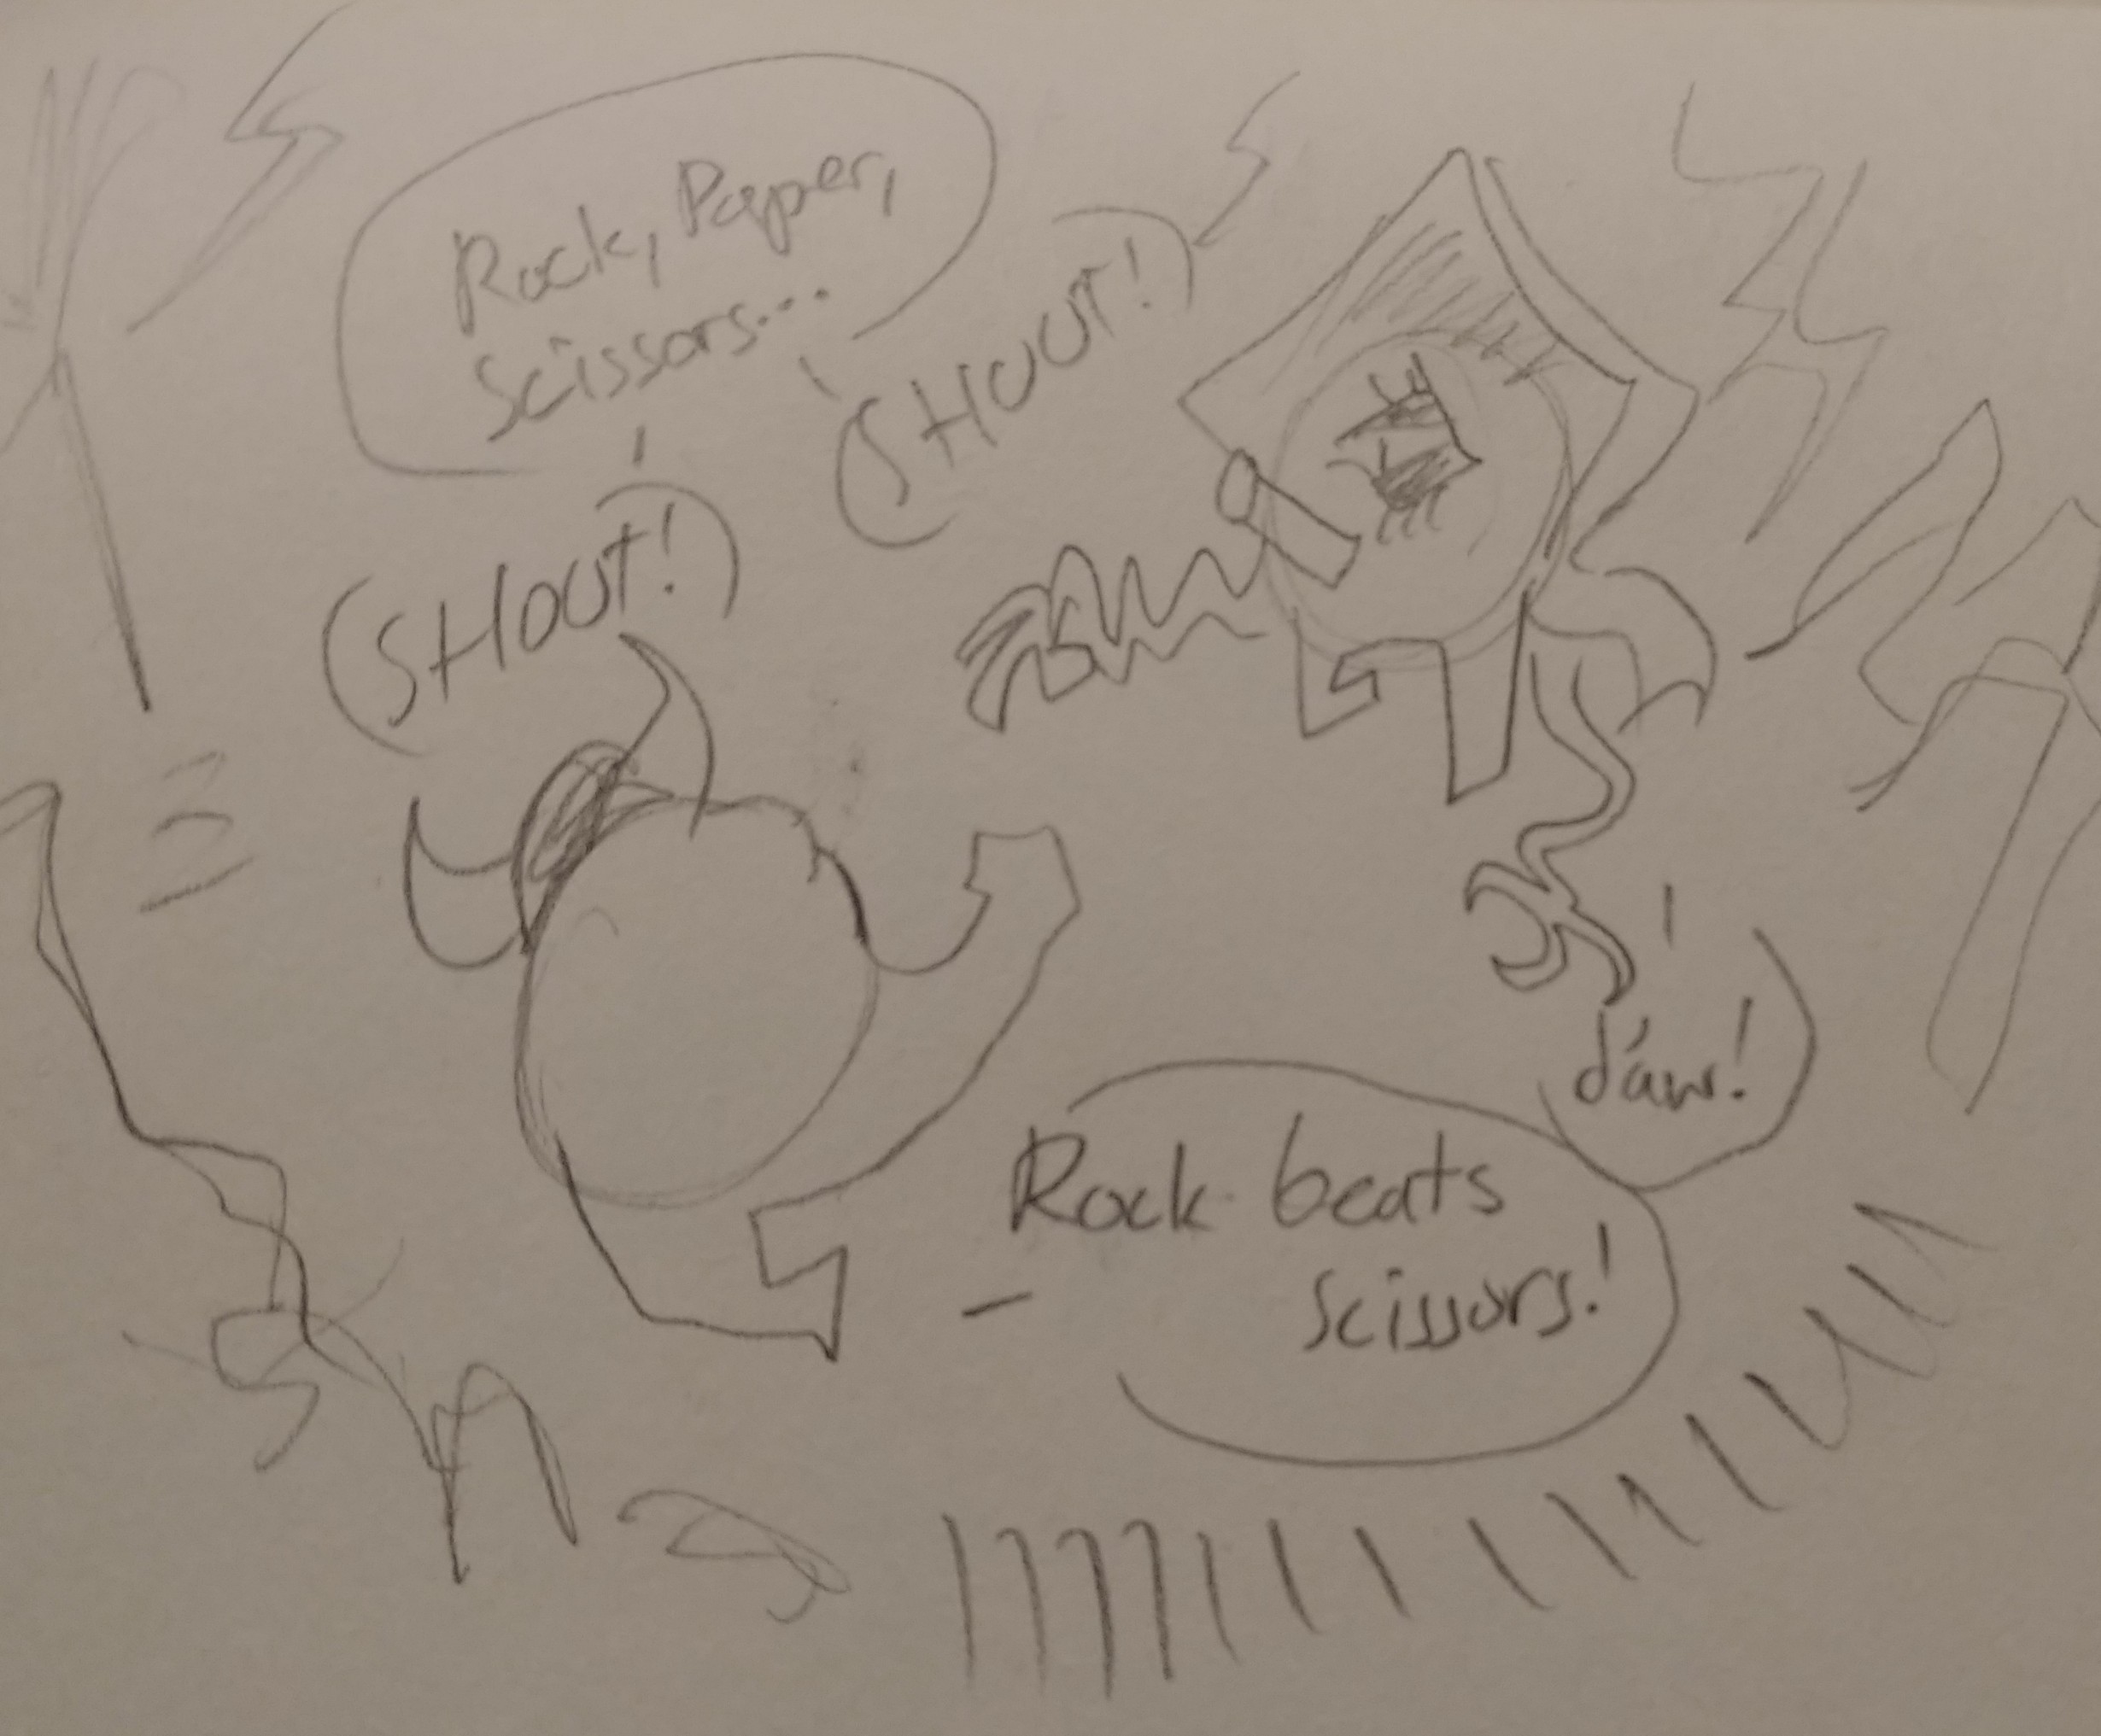 Rock, Paper,
Scissors...
SHOUT!
SHOUT!
d'aw!
Rock beats
Scissors!